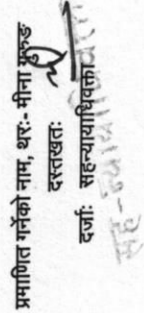 प्रमाणित गर्नेको नाम, थरः- मीना गुरुङ
दस्तखतः
दर्जाः सहन्यायाधिवक्ता
सह-न्यायाधिवक्ता